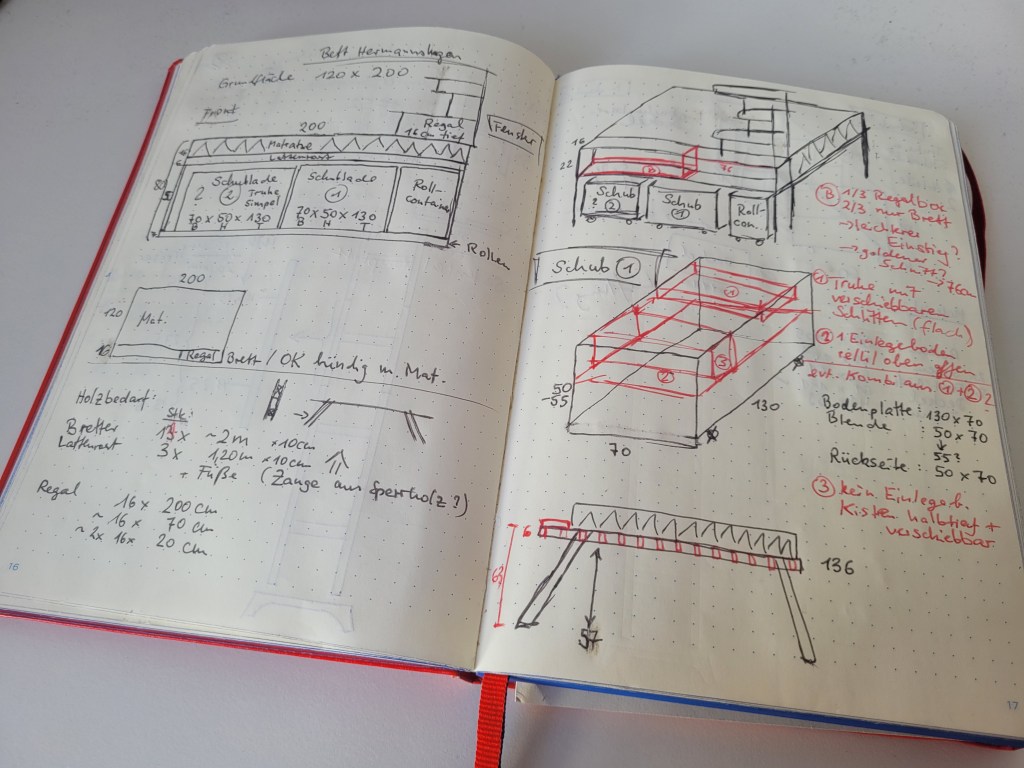 Bett Hermannshagen
Grundfläche 120 x 200
Front
200
Regal
16cm tief
Fenster
Matratze
Lattenrost
Schublade
? ② Truhe
simpel
70 x 50 x 130
B H T
Schublade
①
70 x 50 x 130
B H T
Roll-
container
← Rollen
200
120
Mat.
16
Regal
Brett / OK bündig m. Mat.
Holzbedarf:
Stk.
Bretter
Lattenrost
x ~2m x10cm
3x 1,20m x10cm
+ Füße (Zange aus Sperrholz?)
Regal
16 x 200 cm
~ 16 x 70 cm
~ 2x 16 x 20 cm
16
16
22
76
Schub
? ②
Schub
①
Roll-
con.
1/3 Regalbox
2/3 nur Brett
→ leichterer
Einstieg?
→ goldener
Schnitt?
→ 76cm
Schub ①
① Truhe mit
verschiebbaren
Schlitten (flach)
② 1 Einlegeboden
seitl. oben offen
evt. Kombi aus ①+②?
①
②
③
50
-55
70
130
Bodenplatte: 130 x 70
Blende : 50 x 70
↓
55?
Rückseite : 50 x 70
③ kein Einlegeb.
Kisten halbtief +
verschiebbar
6
63
57
136
17